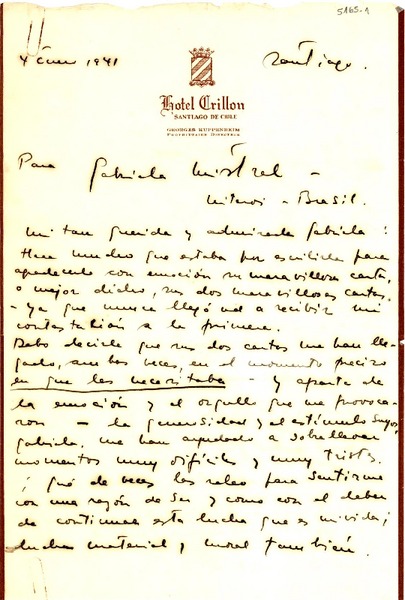 5165-1
4 enero 1941 Santiago.
Hotel Crillon
SANTIAGO DE CHILE
GEORGES KUPPENHEIM
PROPRIETAIRE DIRECTEUR
Para Gabriela Mistral -
Niteroi - Brasil.
Mi tan querida y admirada Gabriela:
Hace mucho que estaba por escribirla para
agradecerle con emoción su maravillosa carta,
o mejor dicho, sus dos maravillosas cartas.
- ya que nunca llegó ud a recibir mi
contestación a la primera.
Debo decirle que sus dos cartas me han lle-
gado, ambas veces, en el momento preciso
en que las necesitaba - y aparte de
la emoción y el orgullo que me provoca-
ron - la generosidad y el estímulo suyos,
Gabriela, me han ayudado a sobrellevar
momentos muy difíciles y muy tristes.
¡ qué de veces las releo para sentirme
con una razón de ser y como con el deber
de continuar esta lucha que es mi vida;
lucha material y moral también.